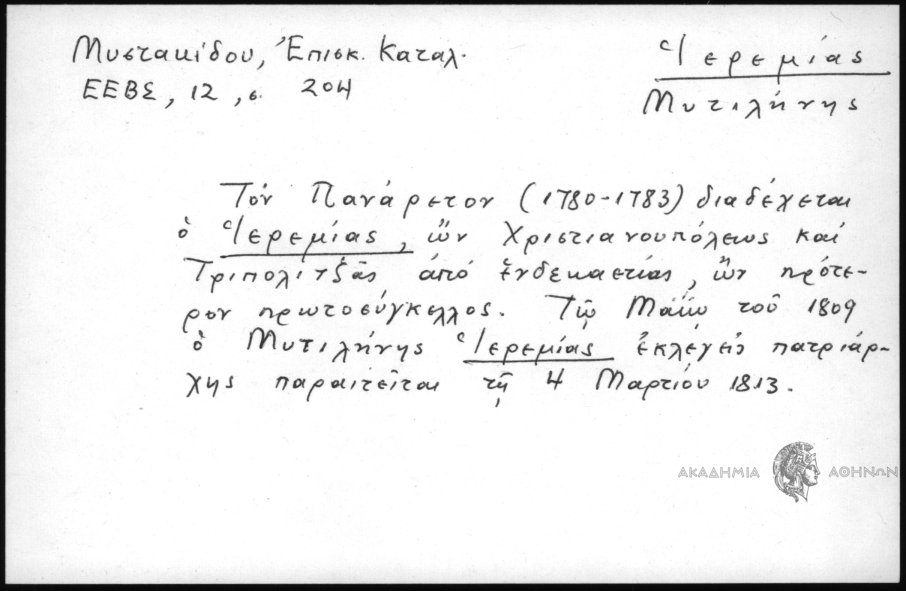 Μυστακίδου, Ἐπισκ. Καταλ.
ΕΕΒΣ, 12, σ. 204
Ἱερεμίας
Μυτιλήνης
Τόν Πανάρετον (1780-1783) διαδέχεται
ὁ Ἱερεμίας, ὤν Χριστιανουπόλεως καί
Τριπολιτζᾶς ἀπό ἑνδεκαετίας, ἦν πρότε-
ρον πρωτοσύγκελλος. Τῷ Μαΐῳ τοῦ 1809
ὁ Μυτιλήνης Ἱερεμίας ἐκλεγείς πατριάρ-
χης παραιτεῖται τῇ 4 Μαρτίου 1813.
ΑΚΑΔΗΜΙΑ ΑΘΗΝΩΝ